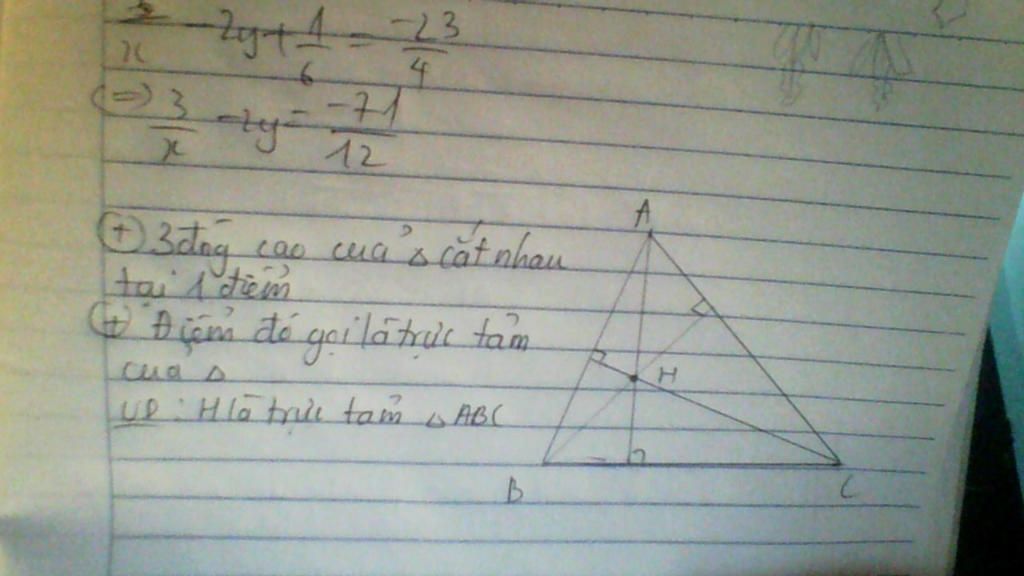 3/x - 2y + 1/6 = -23/4
(=) 3/x - 2y = -71/12
A
(+) 3 đg cao của △ cắt nhau
tại 1 điểm
(+) Điểm đó gọi là trực tâm
của △
H
VD: H là trực tâm △ ABC
B C